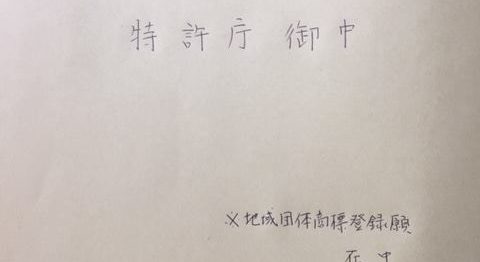 特許庁 御中
※地域団体商標登録願
在中